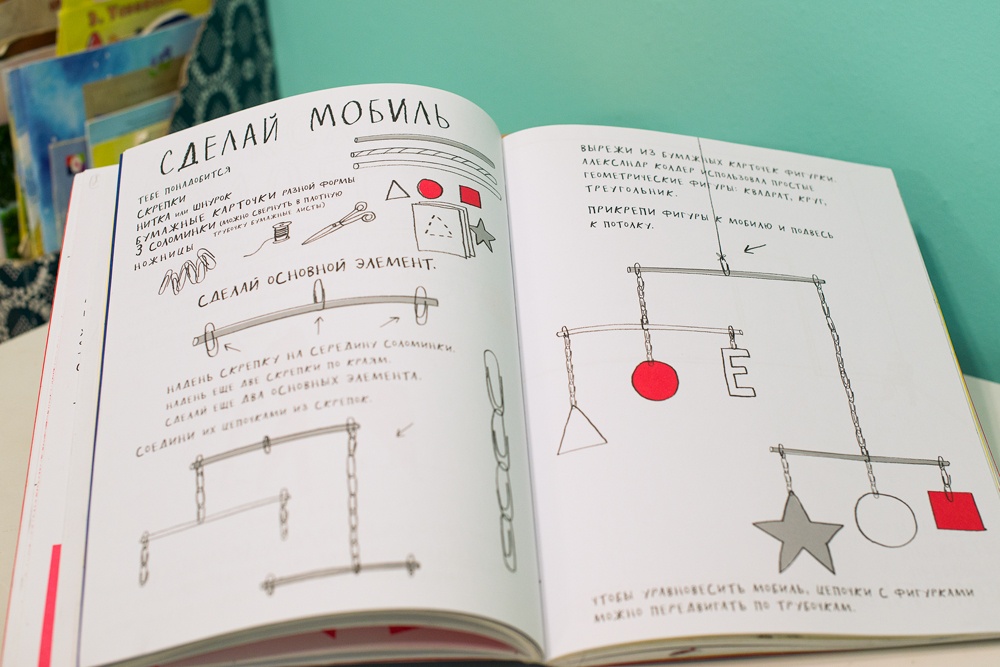 СДЕЛАЙ МОБИЛЬ
ТЕБЕ ПОНАДОБИТСЯ
СКРЕПКИ
НИТКА ИЛИ ШНУРОК
БУМАЖНЫЕ КАРТОЧКИ РАЗНОЙ ФОРМЫ
3 СОЛОМИНКИ (МОЖНО СВЕРНУТЬ В ПЛОТНУЮ
ТРУБОЧКУ БУМАЖНЫЕ ЛИСТЫ)
НОЖНИЦЫ
СДЕЛАЙ ОСНОВНОЙ ЭЛЕМЕНТ.
НАДЕНЬ СКРЕПКУ НА СЕРЕДИНУ СОЛОМИНКИ.
НАДЕНЬ ЕЩЕ ДВЕ СКРЕПКИ ПО КРАЯМ.
СДЕЛАЙ ЕЩЕ ДВА ОСНОВНЫХ ЭЛЕМЕНТА.
СОЕДИНИ ИХ ЦЕПОЧКАМИ ИЗ СКРЕПОК.
ВЫРЕЖИ ИЗ БУМАЖНЫХ КАРТОЧЕК ФИГУРКИ.
АЛЕКСАНДР КОЛДЕР ИСПОЛЬЗОВАЛ ПРОСТЫЕ
ГЕОМЕТРИЧЕСКИЕ ФИГУРЫ: КВАДРАТ, КРУГ,
ТРЕУГОЛЬНИК.
ПРИКРЕПИ ФИГУРЫ К МОБИЛЮ И ПОДВЕСЬ
К ПОТОЛКУ.
E
ЧТОБЫ УРАВНОВЕСИТЬ МОБИЛЬ, ЦЕПОЧКИ С ФИГУРКАМИ
МОЖНО ПЕРЕДВИГАТЬ ПО ТРУБОЧКАМ.